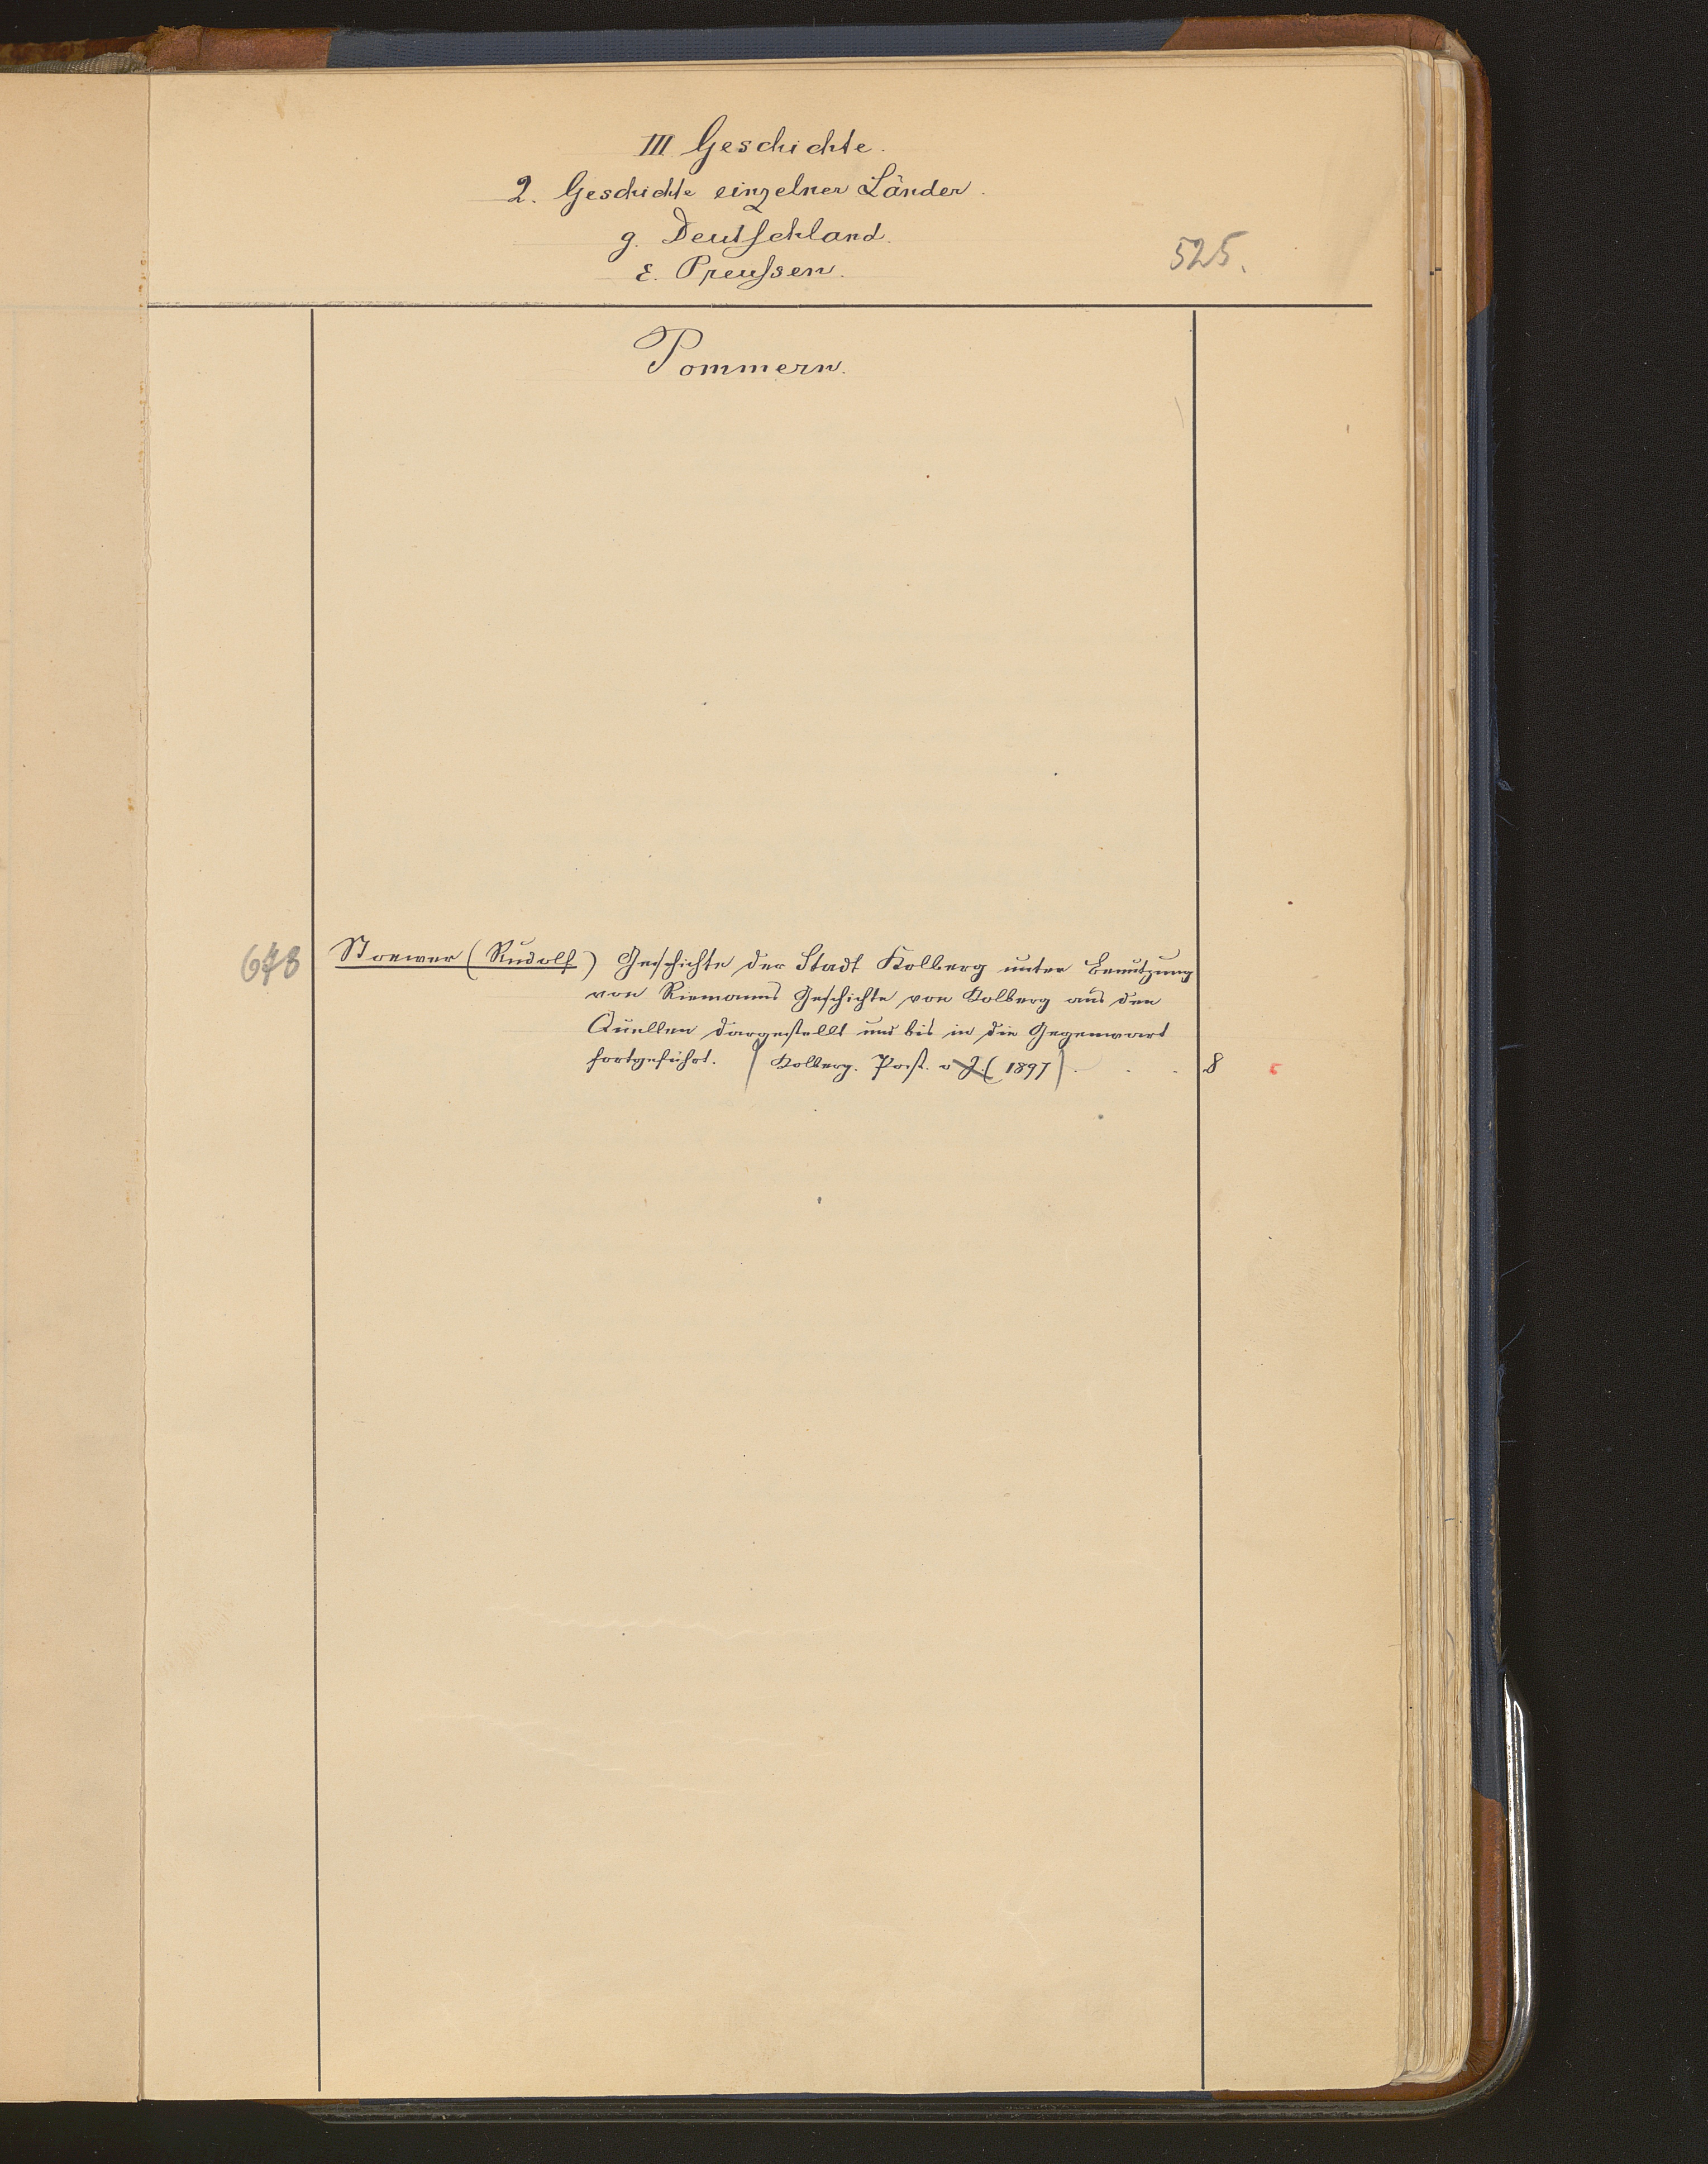 III Geschichte.
2. Geschichte einzelner Länder.
g. Deutschland.
ε. Preussen.
525.
Pommern.
Stoewer (Rudolf) Geschichte der Stadt Kolberg unter Benutzung
von Riemanns Geschichte von Kolberg aus den
Quellen dargestellt und bis in die Gegenwart
fortgeführt. (Kolberg. Post. o J. (1897) . . .
8